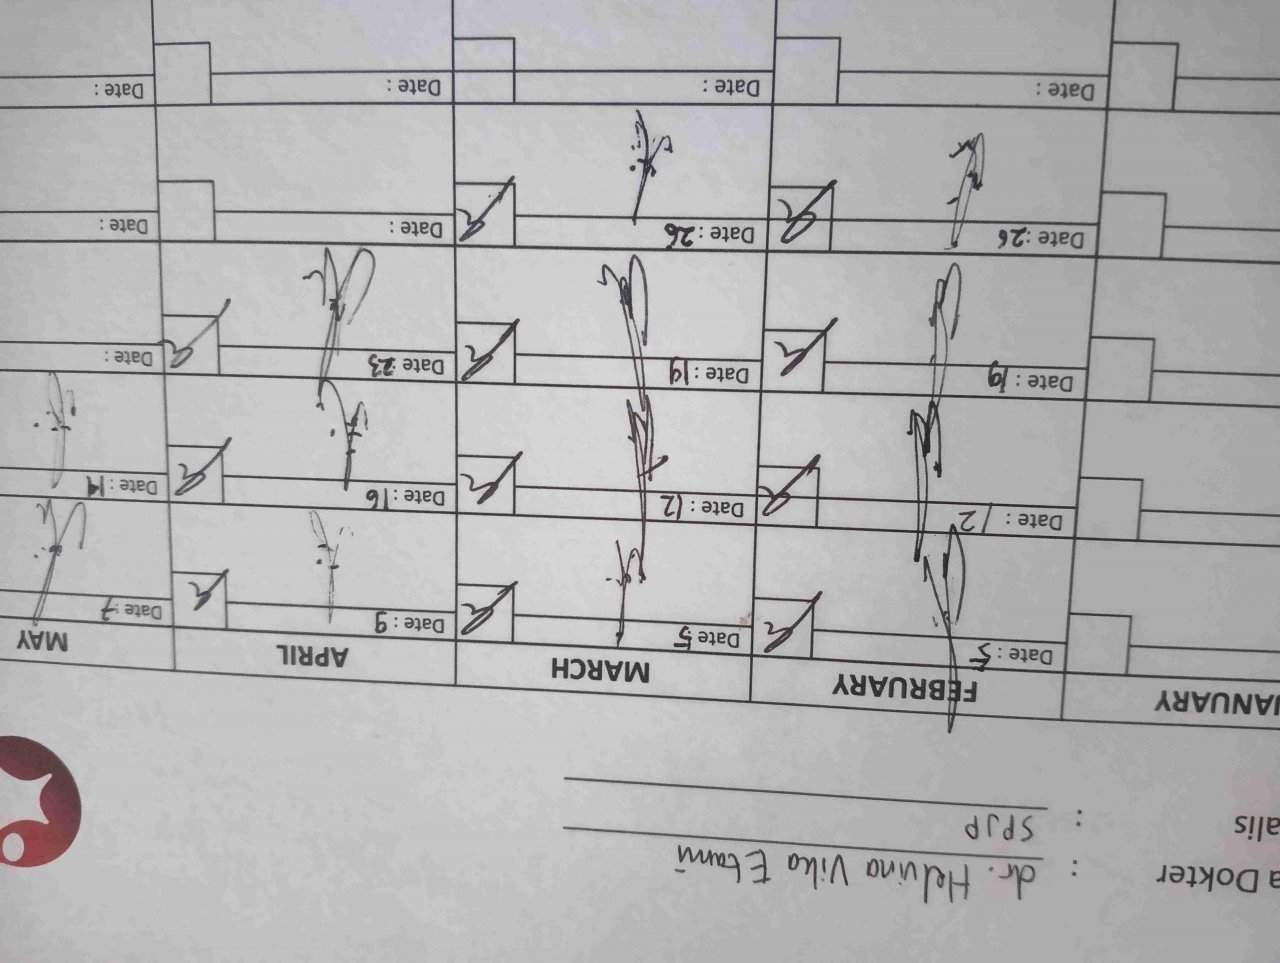 a Dokter : dr. Helvina Vika Etami
alis : SPJP
ANUARY FEBRUARY MARCH APRIL MAY
Date : 5 Date 5 Date : 9 Date : 7
Date : 12 Date : 12 Date : 16 Date : 14
Date : 19 Date : 19 Date 23 Date :
Date : 26 Date : 26 Date : Date :
Date : Date : Date : Date :